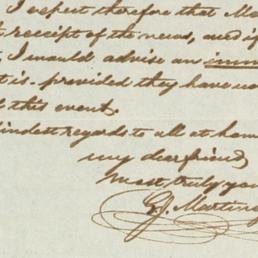 I expect therefore that
receipt of the news, and if
, I would advise an
is provided they have
this event.
kindest regards to all at home
my dear friend,
most truly you
G.J. Marting